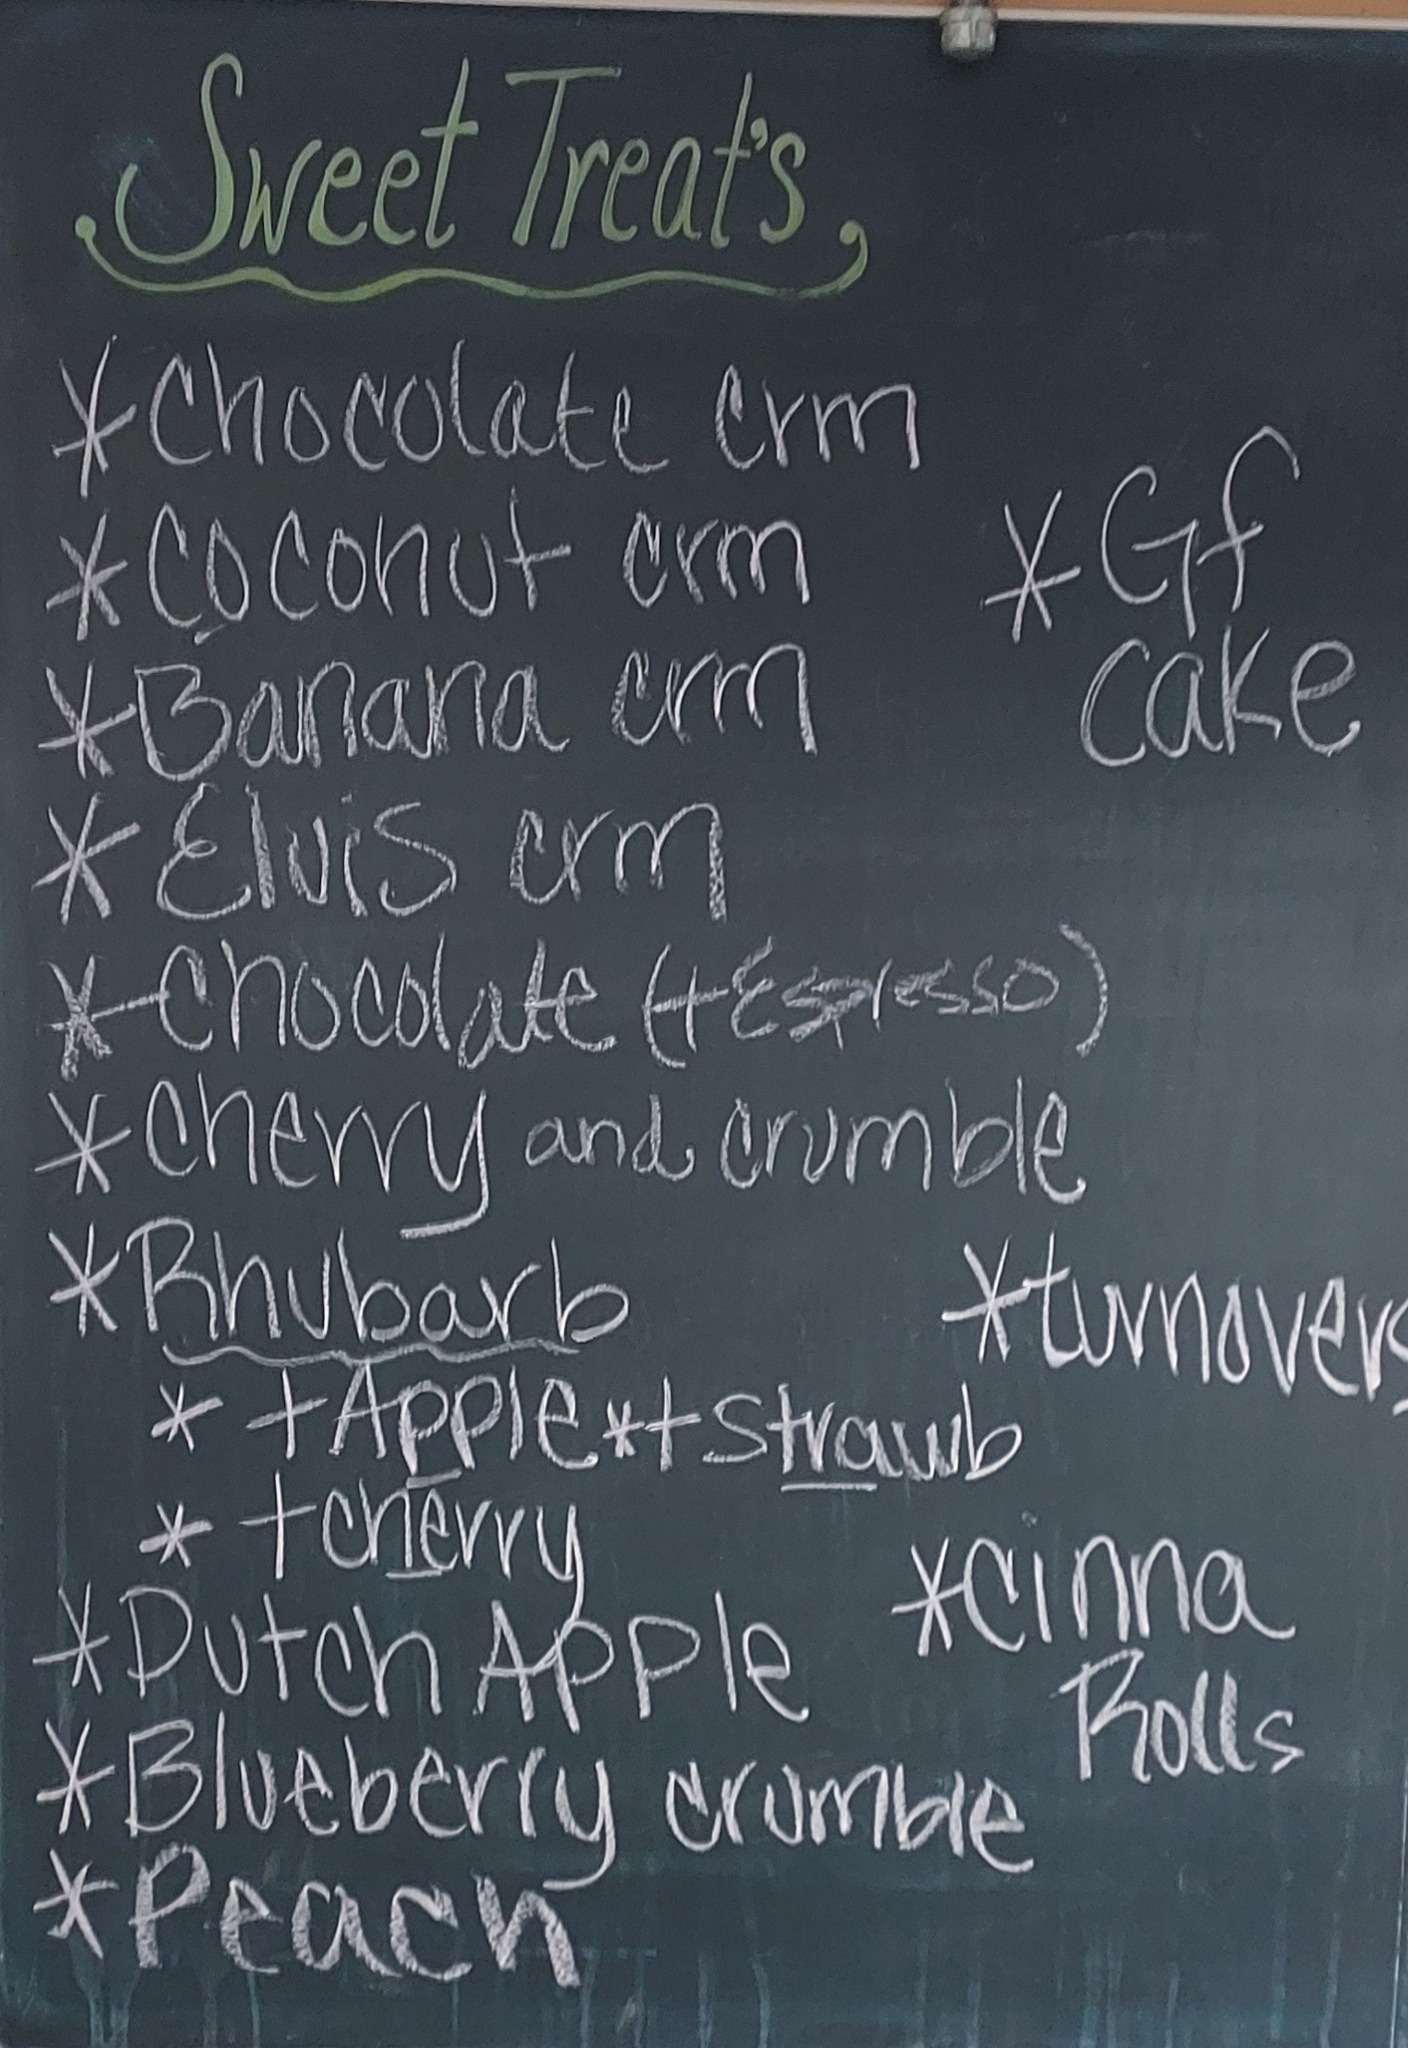 Sweet Treat's
*Chocolate crm
*Coconut crm
*Banana crm
*Elvis crm
*Chocolate (+Espresso)
*Cherry and crumble
*Rhubarb
* +Apple *+Strawb
* +cherry
*Dutch Apple
*Blueberry crumble
*Peach
*Gf
cake
*turnovers
*Cinna
Rolls